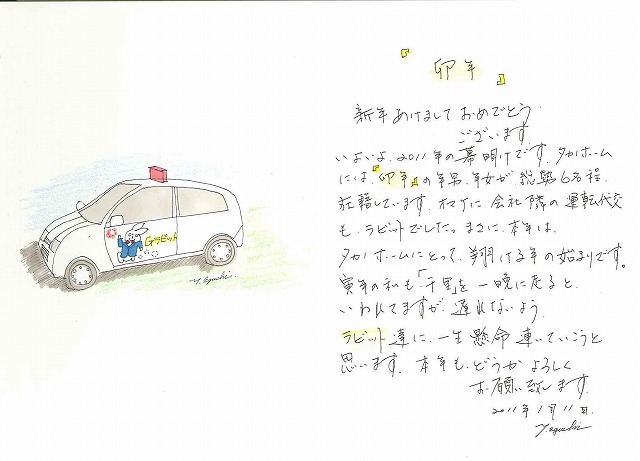 『卯年』
新年あけましておめでとう
ございます
いよいよ、2011年の幕明けです。タカホーム
には、『卯年』の年男、年女が総勢6名程、
在籍しています。オマケに、会社隣の運転代交
も、ラビットでしたっ。まさに、本年は、
タカホームにとって、翔ける年の始まりです。
寅年の私も、「千里」を一晩に走ると
いわれてますが、遅れないよう、
ラビット達に、一生懸命連いていこうと
思います。本年も、どうかよろしく
お願い致します。
2011年1月11日。
Yaguchi
Gラビット
Y. Yaguchi